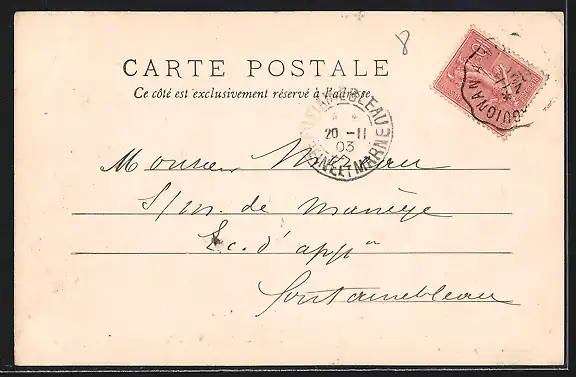 8
CARTE POSTALE
Ce côté est exclusivement réservé à l'adresse
FONTAINEBLEAU
20 - 11
03
SEINE ET MARNE
Monsieur
S/m. de Manège
Ec. d' appon
Fontainebleau